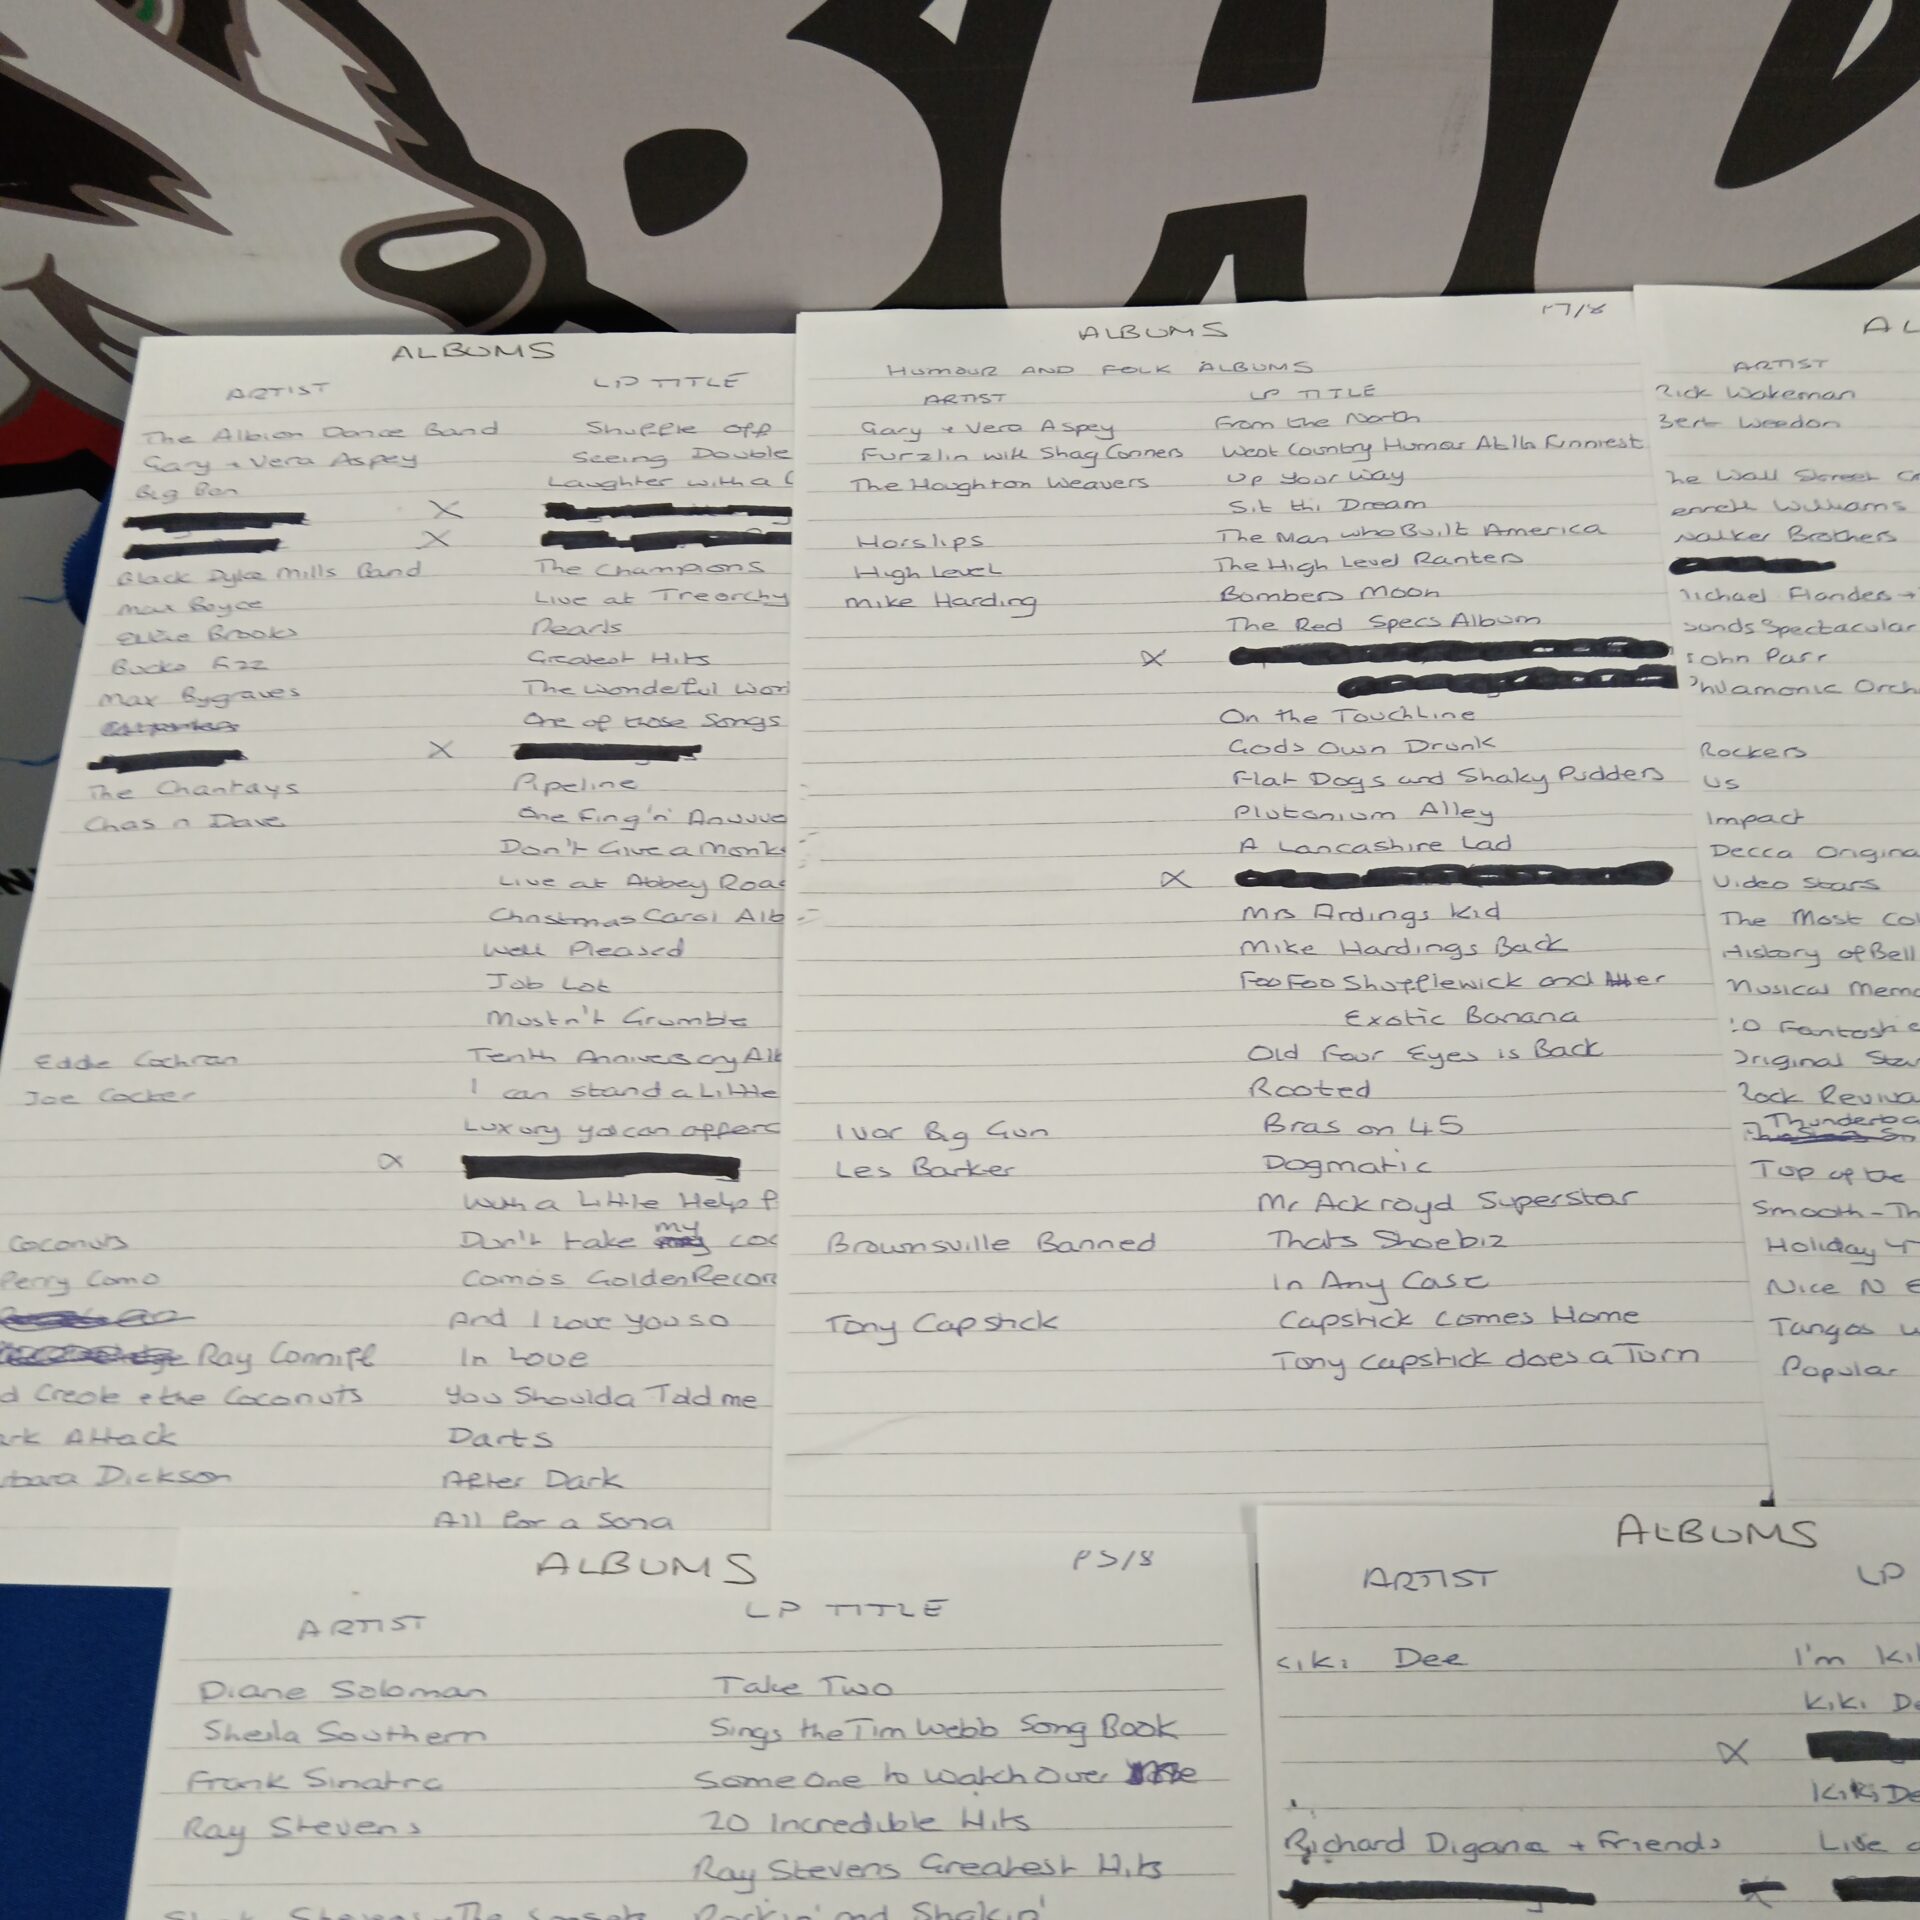 BAD
ALBUMS
ARTIST LP TITLE
The Albion Dance Band Shuffle off
Gary + Vera Aspey Seeing Double
Big Ben Laughter with a
X
X
Black Dyke Mills Band The Champions
Max Boyce Live at Treorchy
Elkie Brooks Pearls
Bucks Fizz Greatest Hits
Max Bygraves The Wonderful Wor
One of those Songs
X
The Chantays Pipeline
Chas n Dave One Fing 'n' Anuvve
Don't Give a Monk
Live at Abbey Road
Christmas Carol Alb
Well Pleased
Job Lot
Mustn't Grumble
Eddie Cochran Tenth Anniversary Alb
Joe Cocker I can stand a Little
Luxury you can afford
X
With a Little Help f
Coconuts Don't take my coc
Perry Como Comos Golden Recor
And I Love you so
Ray Conniff In Love
d Creole + the Coconuts You Shoulda Told me
ark Attack Darts
bara Dickson After Dark
All For a Song
ALBUMS P7/8
HUMOUR AND FOLK ALBUMS
ARTIST LP TITLE
Gary + Vera Aspey From the North
Furzlin with Shag Conners West Country Humor At Its Funniest
The Houghton Weavers Up Your Way
Sit thi Dream
Horslips The Man who Built America
High Level The High Level Ranters
Mike Harding Bombers Moon
The Red Specs Album
X
On the Touchline
Gods Own Drunk
Flat Dogs and Shaky Pudders
Plutonium Alley
A Lancashire Lad
X
Mrs Ardings Kid
Mike Hardings Back
Foo Foo Shufflewick and Her
Exotic Banana
Old Four Eyes is Back
Rooted
Ivor Big Gun Bras on 45
Les Barker Dogmatic
Mr Ackroyd Superstar
Brownsville Banned Thats Shoebiz
In Any Case
Tony Capstick Capstick Comes Home
Tony Capstick does a Turn
AL
ARTIST
Rick Wakeman
Bert Weedon
he Wall Street C
enneth Williams
Walker Brothers
Michael Flanders +
ounds Spectacular
John Parr
Philamonic Orch
Rockers
US
Impact
Decca Origina
Video Stars
The Most Col
History of Bell
Musical Memo
Original Star
Rock Reviva
Thunderbo
Top of the
Smooth - Th
Holiday
Nice N E
Tangos
Popular
ALBUMS P5/8
ARTIST LP TITLE
Diane Soloman Take Two
Sheila Southern Sings the Tim Webb Song Book
Frank Sinatra Someone to Watch Over Me
Ray Stevens 20 Incredible Hits
Ray Stevens Greatest Hits
Stevens + The Sunsets Rockin' and Shakin'
ALBUMS
ARTIST LP
Kiki Dee I'm Kik
Kiki De
X
Kiki De
Richard Digance + Friends Live a
X